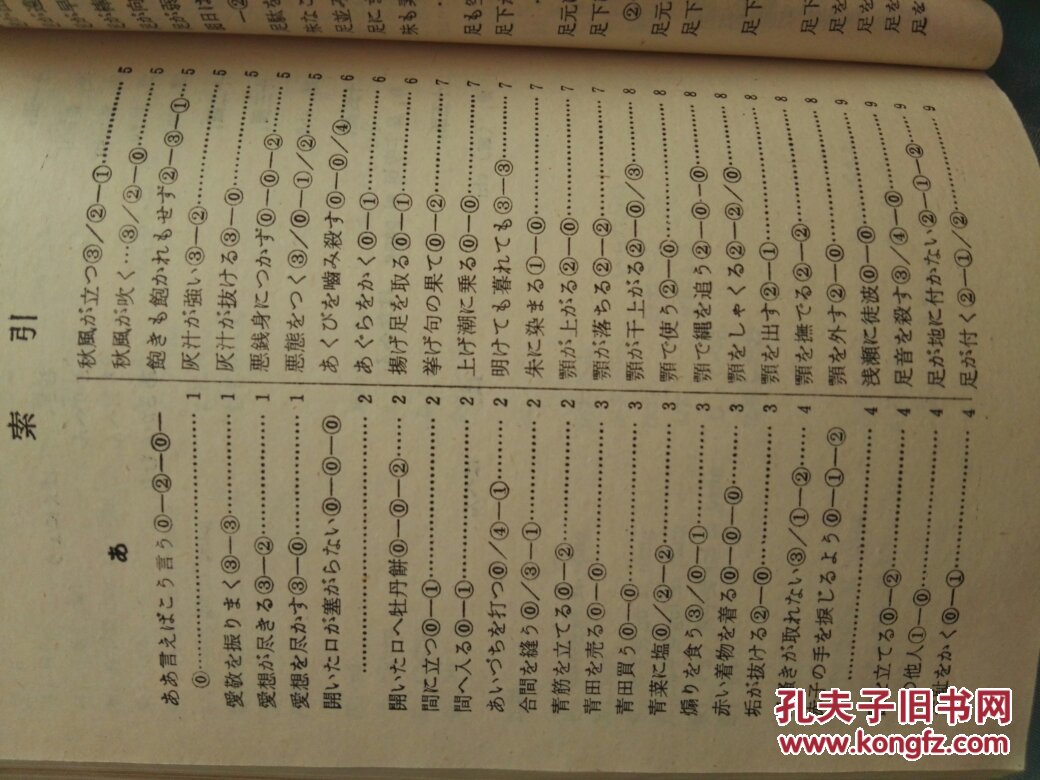 索引
あ
ああ言えばこう言う⓪—②—⓪—
⓪…………………… 1
愛敬を振りまく③—③………… 1
愛想が尽きる③—②………… 1
愛想を尽かす③—⓪………… 1
開いた口が塞がらない⓪—⓪—⓪
…………………… 2
開いた口へ牡丹餅⓪—⓪—②…… 2
間に立つ⓪—①………… 2
間へ入る⓪—①………… 2
あいづちを打つ⓪/④—①…… 2
合間を縫う⓪/③—①……… 2
青筋を立てる⓪—②………… 2
青田を売る⓪—⓪………… 3
青田買う⓪—⓪………… 3
青菜に塩⓪/②—②………… 3
煽りを食う③/⓪—①……… 3
赤い着物を着る⓪—⓪—⓪…… 3
垢が抜ける②—⓪………… 3
きが取れない③/①—②…… 4
子の手を捩じるよう⓪—①—②
…………………… 4
立てる⓪—②………… 4
他人①—⓪………… 4
をかく⓪—①………… 4
秋風が立つ③/②—①………… 5
秋風が吹く…③/②—⓪……… 5
飽きも飽かれもせず②—③—①…… 5
灰汁が強い③—②………… 5
灰汁が抜ける③—⓪………… 5
悪銭身につかず⓪—⓪—②…… 5
悪態をつく③/⓪—①/②…… 5
あくびを噛み殺す⓪—⓪/④…… 6
あぐらをかく⓪—①………… 6
揚げ足を取る⓪—①………… 6
挙げ句の果て⓪—②………… 7
上げ潮に乗る⓪—⓪………… 7
明けても暮れても③—③…… 7
朱に染まる①—⓪………… 7
顎が上がる②—⓪………… 7
顎が落ちる②—②………… 7
顎が干上がる②—⓪/③…… 8
顎で使う②—⓪………… 8
顎で縄を追う②—⓪—⓪…… 8
顎をしゃくる②—②/⓪…… 8
顎を出す②—①………… 8
顎を撫でる②—②………… 8
顎を外す②—⓪………… 9
浅瀬に徒波⓪—⓪………… 9
足音を殺す③/④—⓪……… 9
足が地に付かない②—①—②…… 9
足が付く②—①/②………
足並み
足に
足も
足下が
足元に
足下
②
足元
足下
足を
足を
足を
孔夫子旧书网
www.kongfz.com